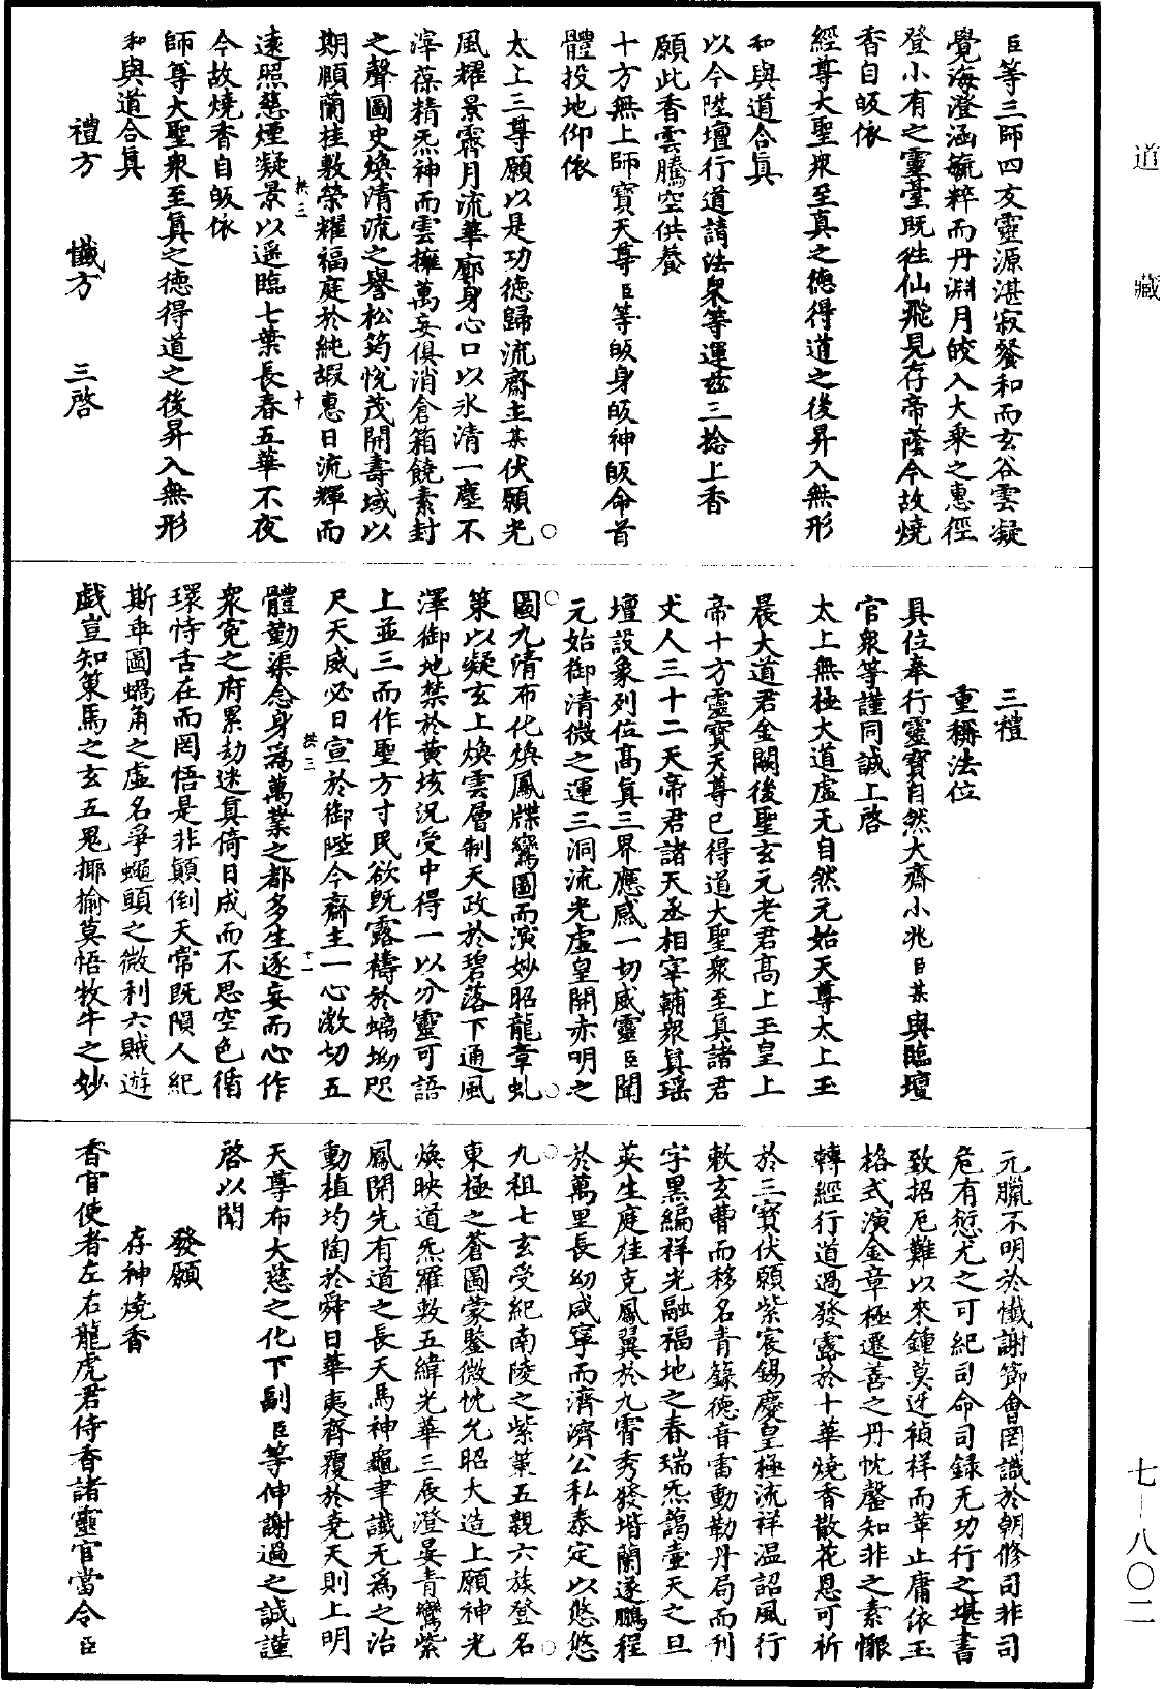 道藏
七-八〇二
臣等三師四友靈源湛寂餐和而玄谷雲凝
覺海澄涵毓粹而丹淵月皎入大乘之惠徑
登小有之靈臺既往仙飛見存帝蔭今故燒
香自皈依
經尊大聖衆至真之德得道之後昇入無形
和與道合真
以今陞壇行道請法衆等運兹三捻上香
願此香雲騰空供養
十方無上師寶天尊臣等皈身皈神皈命首
體投地仰依
太上三尊願以是功德歸流齋主某伏願光
風耀景霽月流華廓身心口以氷清一塵不
滓葆精炁神而雲擁萬妄俱消倉箱饒素封
之聲圖史煥清流之譽松筠悅茂開壽域以
期頤蘭桂敷榮耀福庭於純嘏惠日流輝而
遠照慈煙凝景以遥臨七葉長春五華不夜
今故燒香自皈依
師尊大聖衆至真之德得道之後昇入無形
和與道合真
禮方 懺方 三啓
三禮
重稱法位
具位奉行靈寶自然大齋小兆臣某與臨壇
官衆等謹同誠上啓
太上無極大道虛无自然元始天尊太上玉
晨大道君金闕後聖玄元老君高上玉皇上
帝十方靈寶天尊已得道大聖衆至真諸君
丈人三十二天帝君諸天丞相宰輔衆真瑶
壇設象列位高真三界應感一切威靈臣聞
元始御清微之運三洞流光虛皇開赤明之
圖九清布化煥鳳牒鸞圖而演妙昭龍章虬
篆以凝玄上煥雲層制天政於碧落下通風
澤御地禁於黄垓況受中得一以分靈可語
上並三而作聖方寸民欲既露禱於螭坳咫
尺天威必日宣於御陛今齋主一心激切五
體勤渠念身爲萬業之都多生逐妄而心作
衆寃之府累劫迷真倚日成而不思空色循
環恃舌在而罔悟是非顛倒天常既隕人紀
斯乖圖蝸角之虛名爭蠅頭之微利六賊遊
戯豈知策馬之玄五鬼揶揄莫悟牧牛之妙
元臘不明於懺謝節會罔識於朝修司非司
危有愆尤之可紀司命司録无功行之堪書
致招厄難以來鍾莫迓禎祥而萃止庸依玉
格式演金章極遷善之丹忱罄知非之素悃
轉經行道過發露於十華燒香散花恩可祈
於三寶伏願紫宸錫慶皇極流祥温詔風行
敕玄曹而移名青籙德音雷動勒丹局而刊
字黑編祥光融福地之春瑞炁藹壷天之旦
英生庭桂克鳳翼於九霄秀發堦蘭遂鵬程
於萬里長幼咸寧而濟濟公私泰定以悠悠
九祖七玄受紀南陵之紫策五親六族登名
東極之蒼圖蒙鑒微忱允昭大造上願神光
煥映道炁羅敷五緯光華三辰澄晏青鸞紫
鳳開先有道之長天馬神龜聿讖无爲之治
動植均陶於舜日華夷齊覆於堯天則上明
天尊布大慈之化下副臣等伸謝過之誠謹
啓以聞
發願
存神燒香
香官使者左右龍虎君侍香諸靈官當令臣